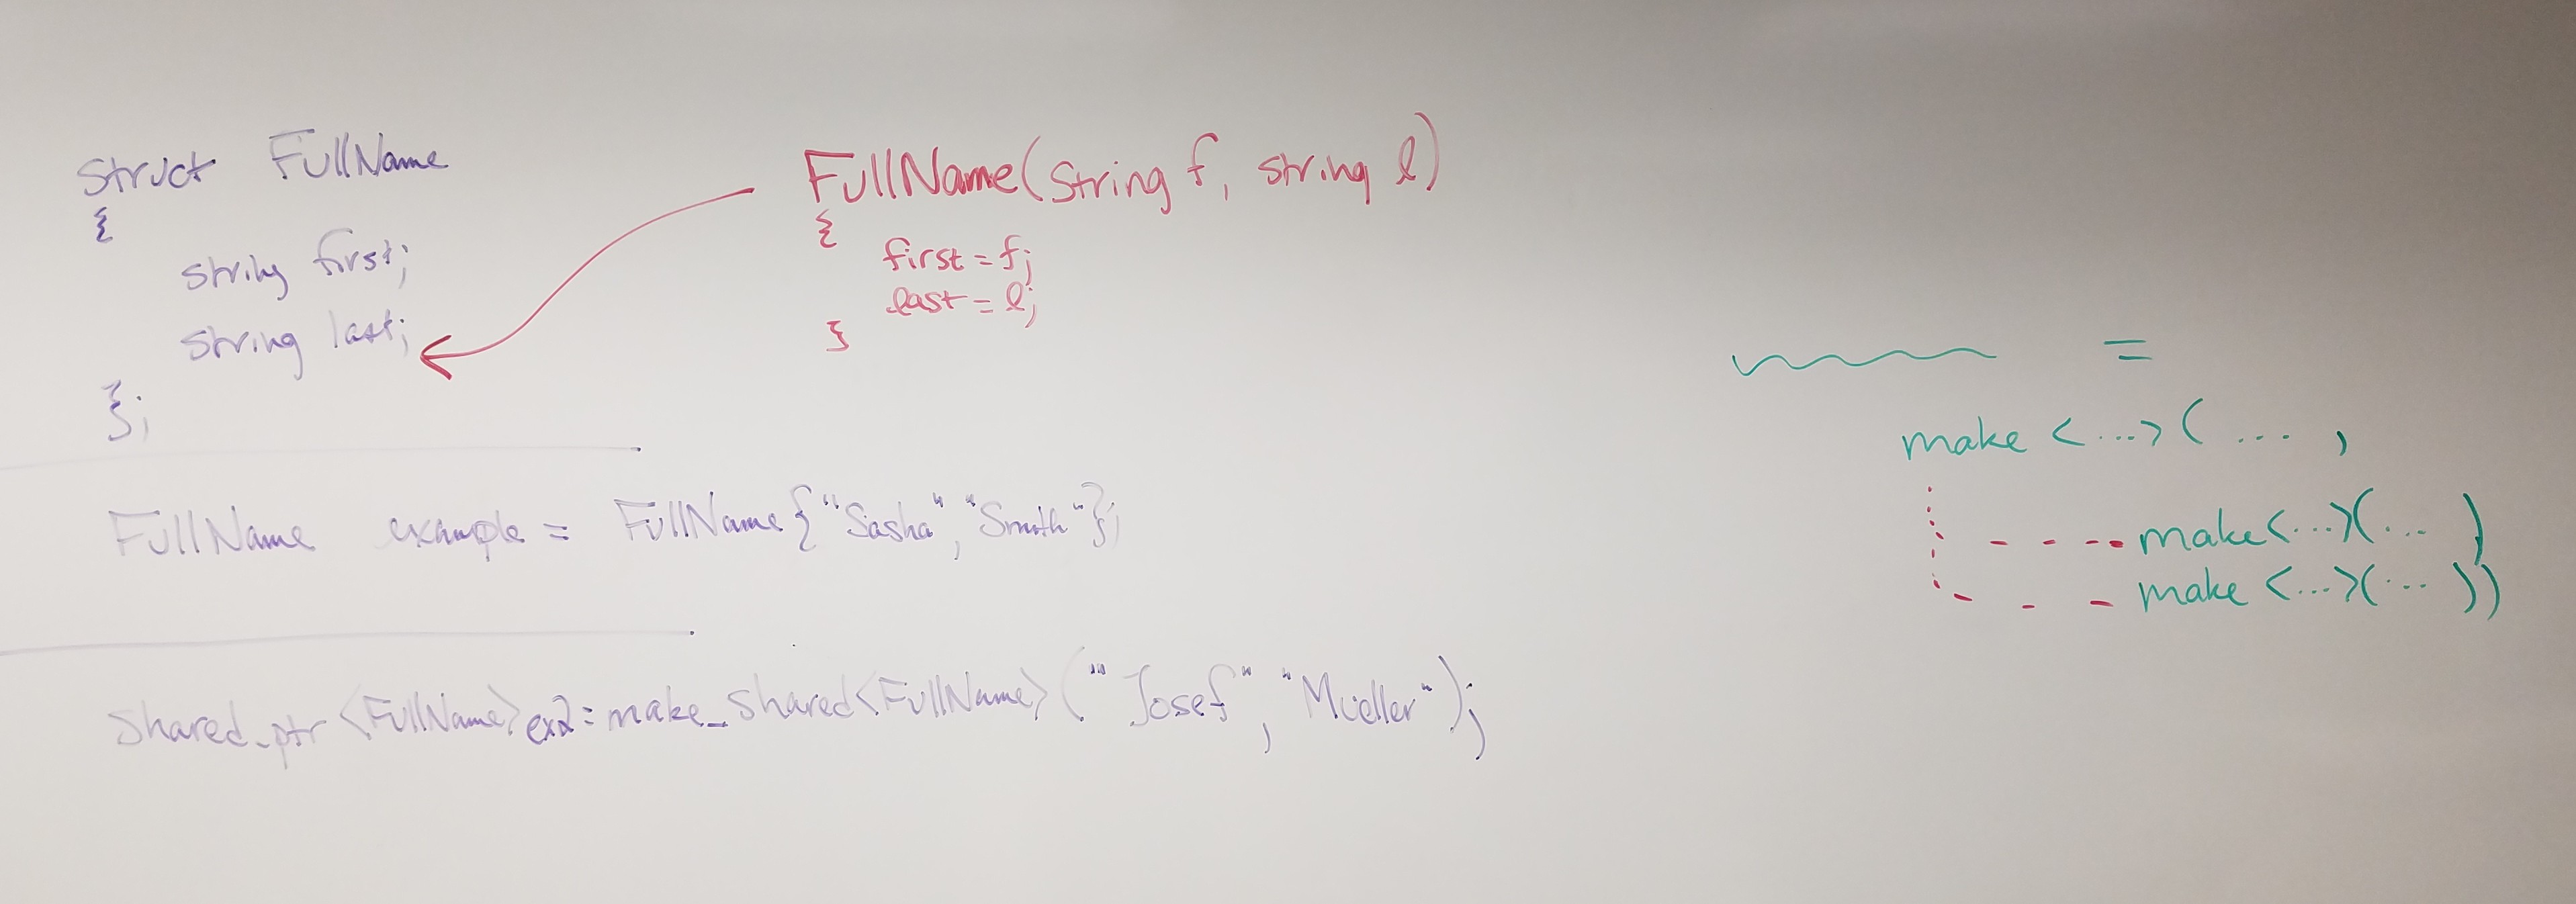 struct FullName
{
string first;
string last;
};
FullName(string f, string l)
{
first = f;
last = l;
}
FullName example = FullName{"Sasha", "Smith"};
shared_ptr<FullName> ex2 = make_shared<FullName>("Josef", "Mueller");
=
make <...>( ... ,
make<...>(... )
make <...>(... ))